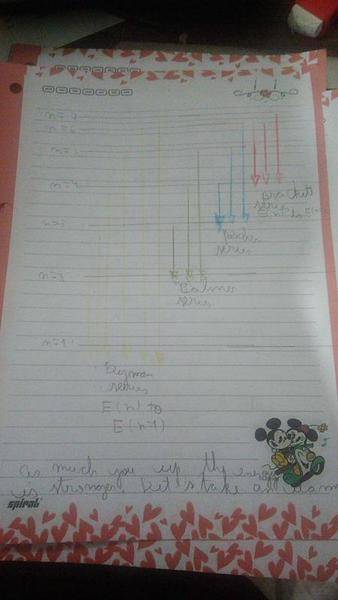 n=7
n=6
n=5
n=4
n=3
Bracket
series
E(n) to
Paschen
series
n=2
Balmer
series
n=1
Lyman
series
E(n) to
E(n-1)
As much you up, the energy
is stronger, let's take an
spiral